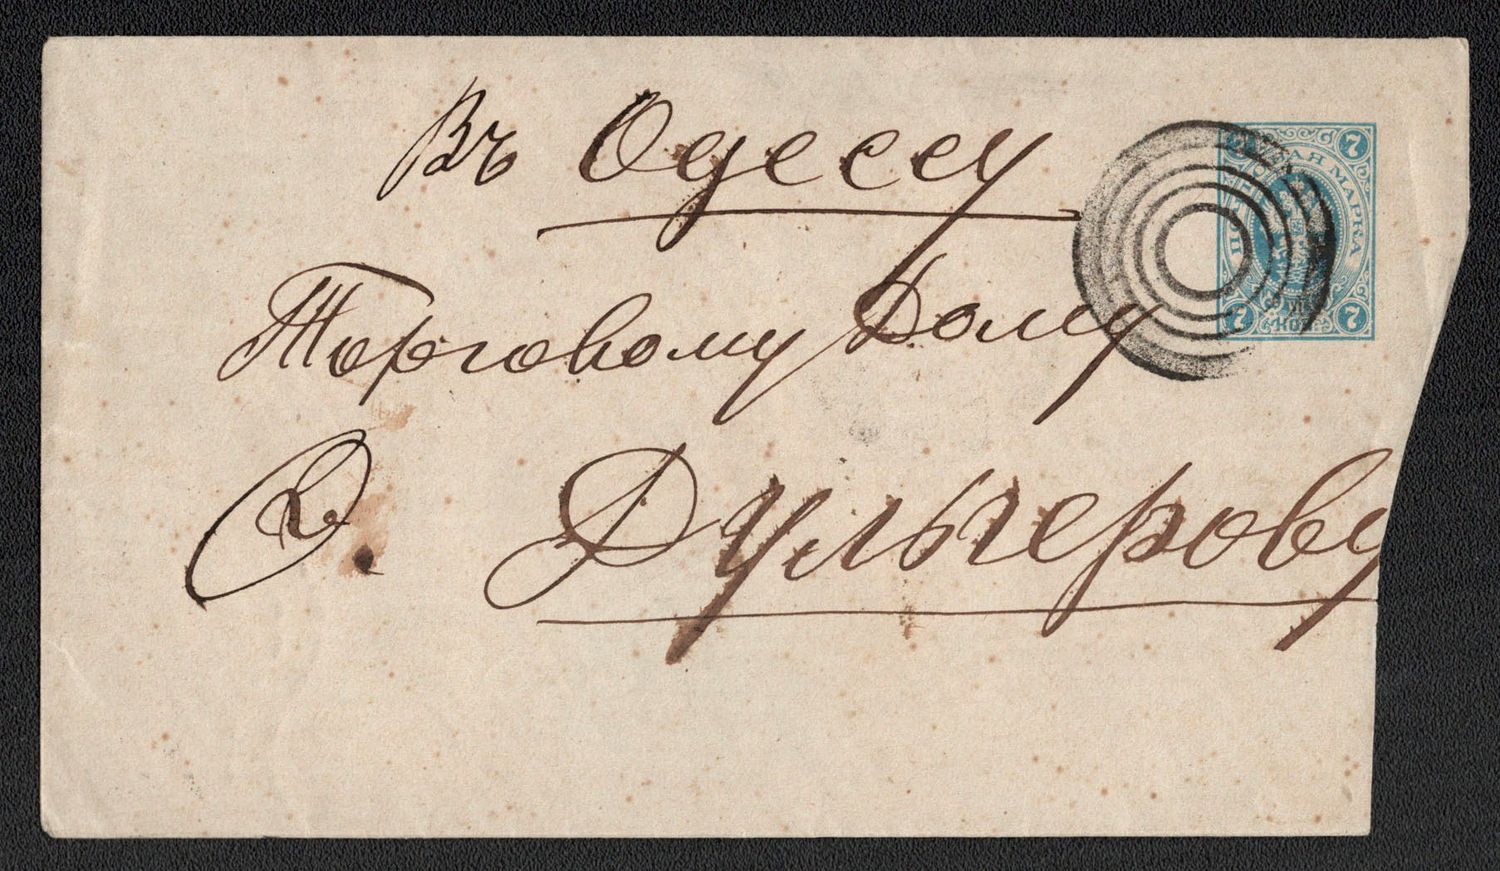 Въ Одессу
Торговому Дому
Ѳ. Дульгерову
7
7
МАРКА
7
7
КОП.